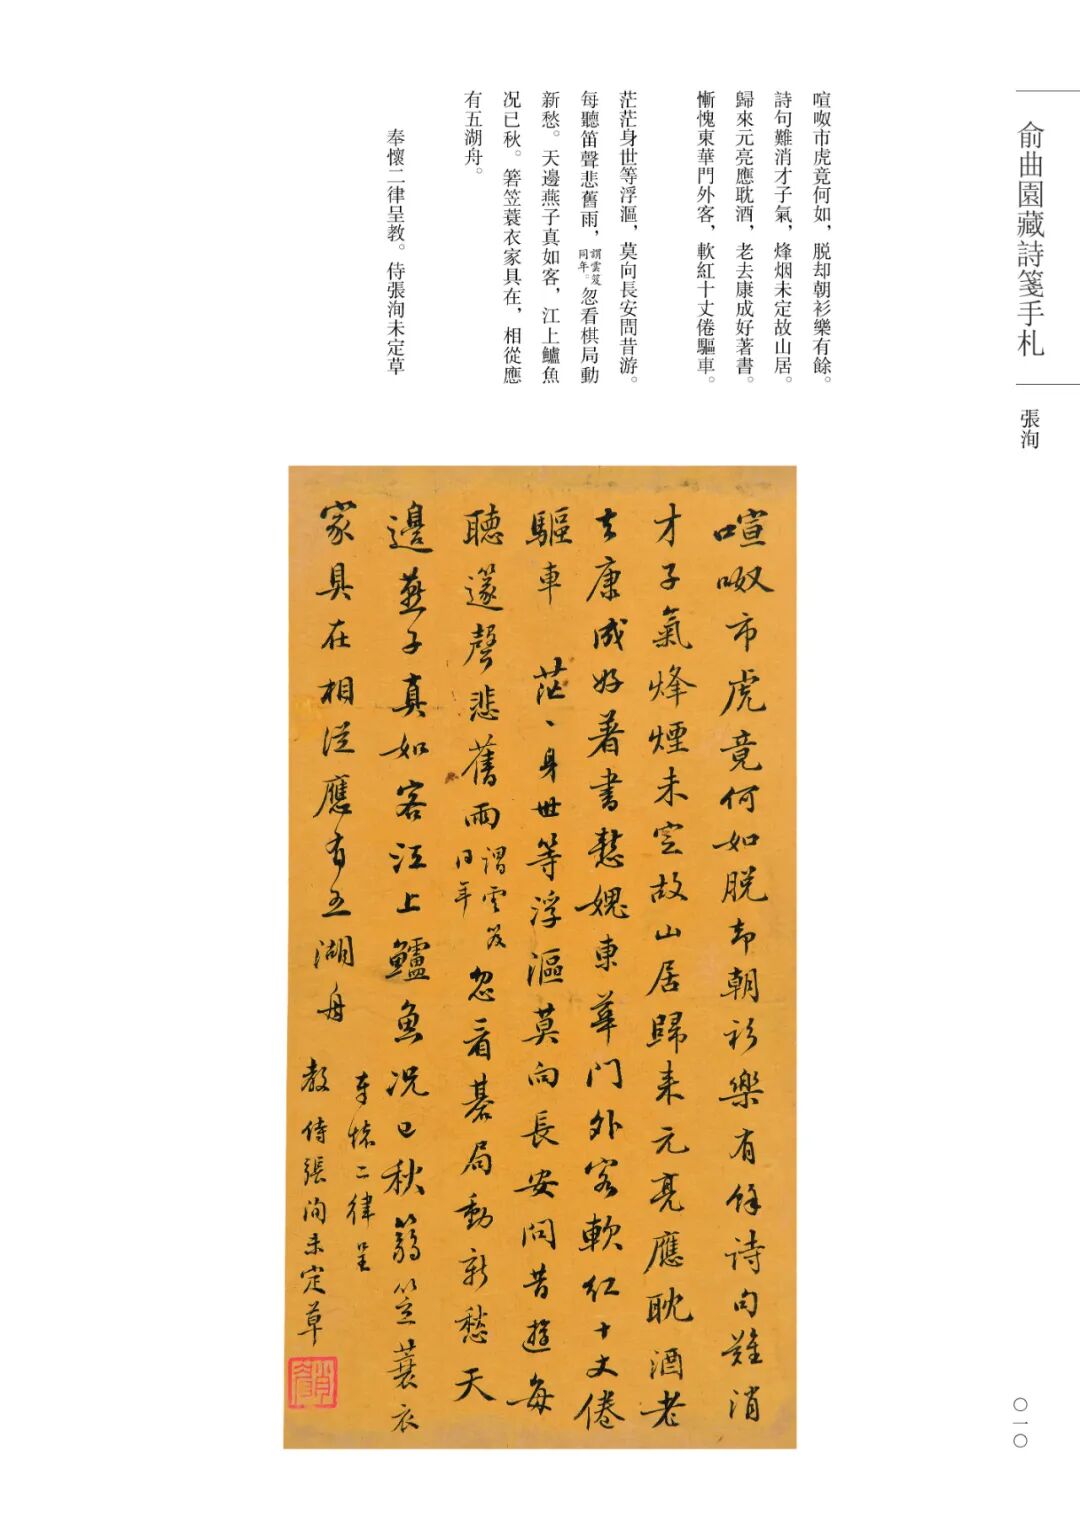 俞曲園藏詩箋手札
張洵
喧呶市虎竟何如，脱却朝衫樂有餘。
詩句難消才子氣，烽烟未定故山居。
歸來元亮應耽酒，老去康成好著書。
慚愧東華門外客，軟紅十丈倦驅車。
茫茫身世等浮漚，莫向長安問昔游。
每聽笛聲悲舊雨，謂雲笈同年。忽看棋局動
新愁。天邊燕子真如客，江上鱸魚
況已秋。箬笠蓑衣家具在，相從應
有五湖舟。
奉懷二律呈教。侍張洵未定草
喧呶市虎竟何如脱却朝衫樂有餘詩句難消
才子氣烽煙未定故山居歸來元亮應耽酒老
去康成好著書慙媿東華門外客軟紅十丈倦
驅車 茫〻身世等浮漚莫向長安問昔遊每
聽篴聲悲舊雨謂雲笈同年忽看棊局動新愁天
邊燕子真如客江上鱸魚況已秋篛笠蓑衣
家具在相從應有五湖舟
奉懷二律呈
教侍張洵未定草
〇一〇